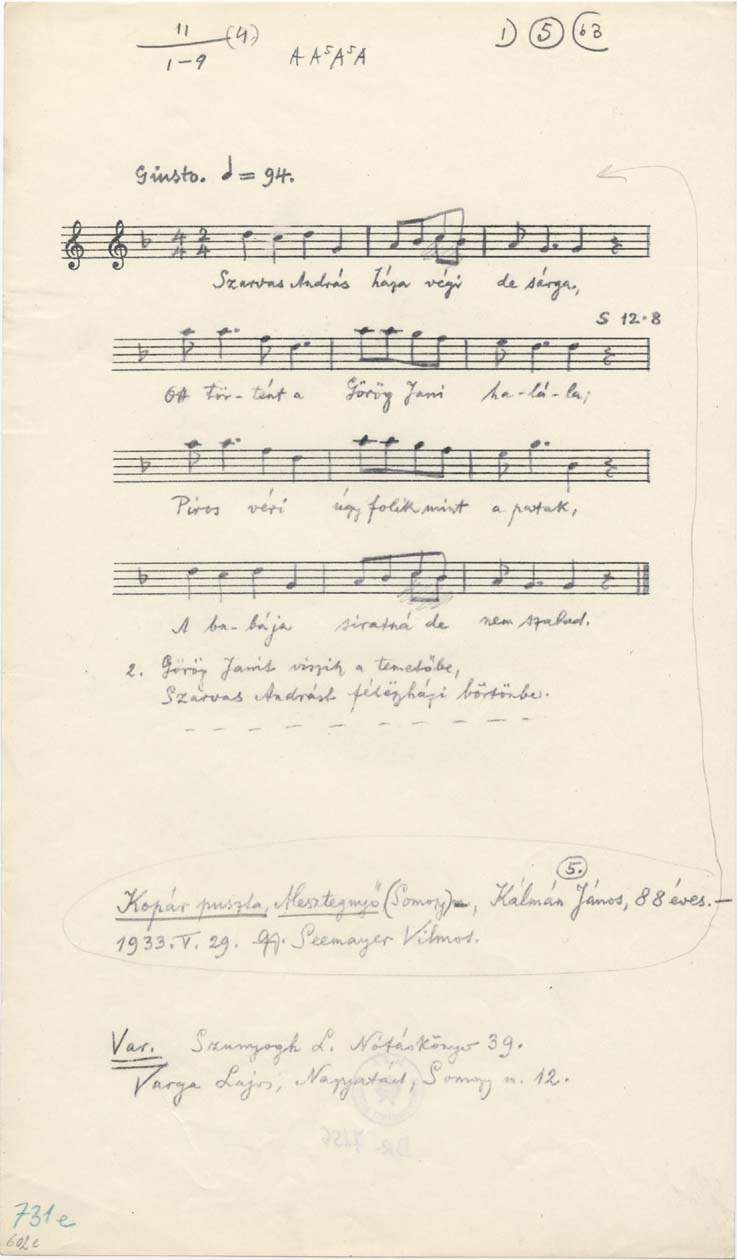 11 (4)
1-9
A A⁵ A⁵ A
1) ⑤ (b3
Giusto. 𝅗𝅥 = 94.
4/4 2/4
Szarvas András háza végi de sárga,
S 12·8
Ott tör-tént a Görög Jani ha-lá-la;
Piros véri úgy folik mint a patak,
A ba-bája siratná de nem szabad.
2. Görög Janit viszik a temetőbe,
Szarvas Andrást félëgházi börtönbe.
5.
Kopár puszta, Mesztegnyő (Somogy), Kálmán János, 88 éves.-
1933. V. 29. Gy. Seemayer Vilmos.
Var. Szunyogh L. Nótáskönyv 39.
Varga Lajos, Nagyatád, Somogy m. 12.
731e